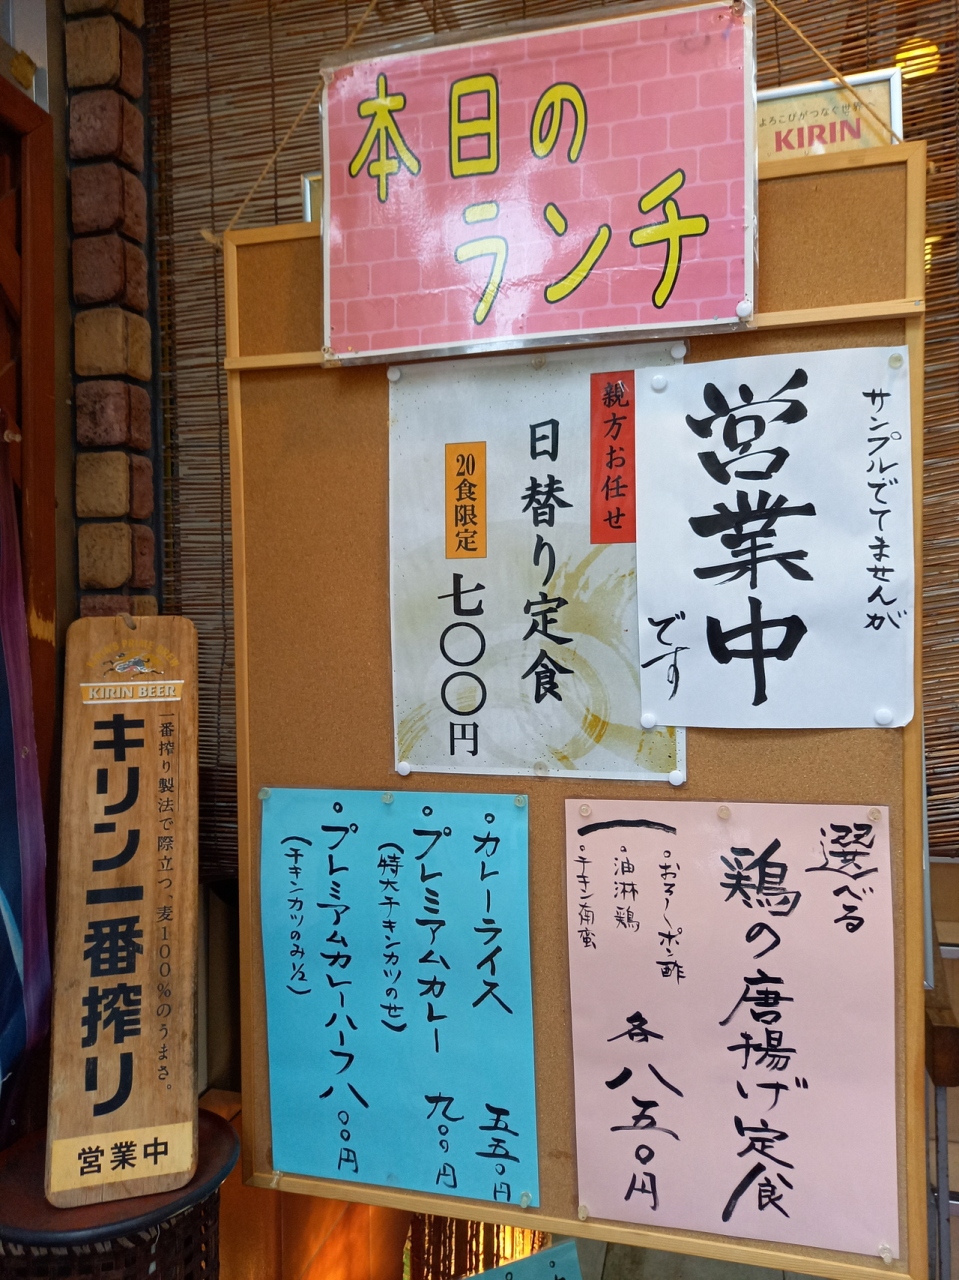 本日の
ランチ
よろこびがつなぐ世界
KIRIN
サンプルでてませんが
営業中
です
親方お任せ
日替り定食
20食限定
七〇〇円
選べる
鶏の唐揚げ定食
・おろしポン酢
・油淋鶏
・チキン南蛮
各八五〇円
・カレーライス 五五〇円
・プレミアムカレー 九〇〇円
(特大チキンカツのせ)
・プレミアムカレーハーフ 八〇〇円
(チキンカツのみ1/2)
KIRIN BEER
一番搾り製法で際立つ、麦100%のうまさ。
キリン一番搾り
営業中